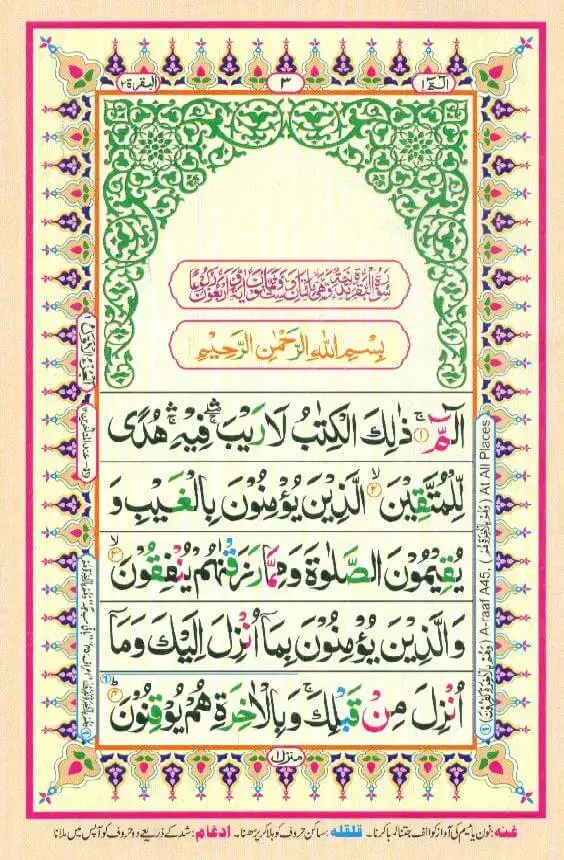 الٓمّٓ ١
٣
البقرة ٢
سُوْرَةُ الْبَقَرَةِ مَدَنِيَّةٌ وَّهِيَ مِائَتَانِ وَسِتٌّ وَّثَمَانُوْنَ اٰيَةً وَّاَرْبَعُوْنَ رُكُوْعًا
بِسْمِ اللهِ الرَّحْمٰنِ الرَّحِيْمِ
الٓمّٓ ۚ﴿۱﴾ ذٰلِكَ الْكِتٰبُ لَا رَيْبَ ۛ فِيْهِ ۛ هُدًى
لِّلْمُتَّقِيْنَ ۙ﴿۲﴾ الَّذِيْنَ يُؤْمِنُوْنَ بِالْغَيْبِ وَ
يُقِيْمُوْنَ الصَّلٰوةَ وَمِمَّا رَزَقْنٰهُمْ يُنْفِقُوْنَ ۙ﴿۳﴾
وَالَّذِيْنَ يُؤْمِنُوْنَ بِمَاۤ اُنْزِلَ اِلَيْكَ وَمَاۤ
اُنْزِلَ مِنْ قَبْلِكَ ۚ وَبِالْاٰخِرَةِ هُمْ يُوْقِنُوْنَ ؕ﴿۴﴾
A-raaf A45. At All Places
منزل ۱
غنه: نون یا میم کی آواز کو الف جتنا لمبا کرنا۔ قلقله: ساکن حروف کو ہلا کر پڑھنا۔ ادغام: شد کے ذریعے دو حروف کو آپس میں ملانا